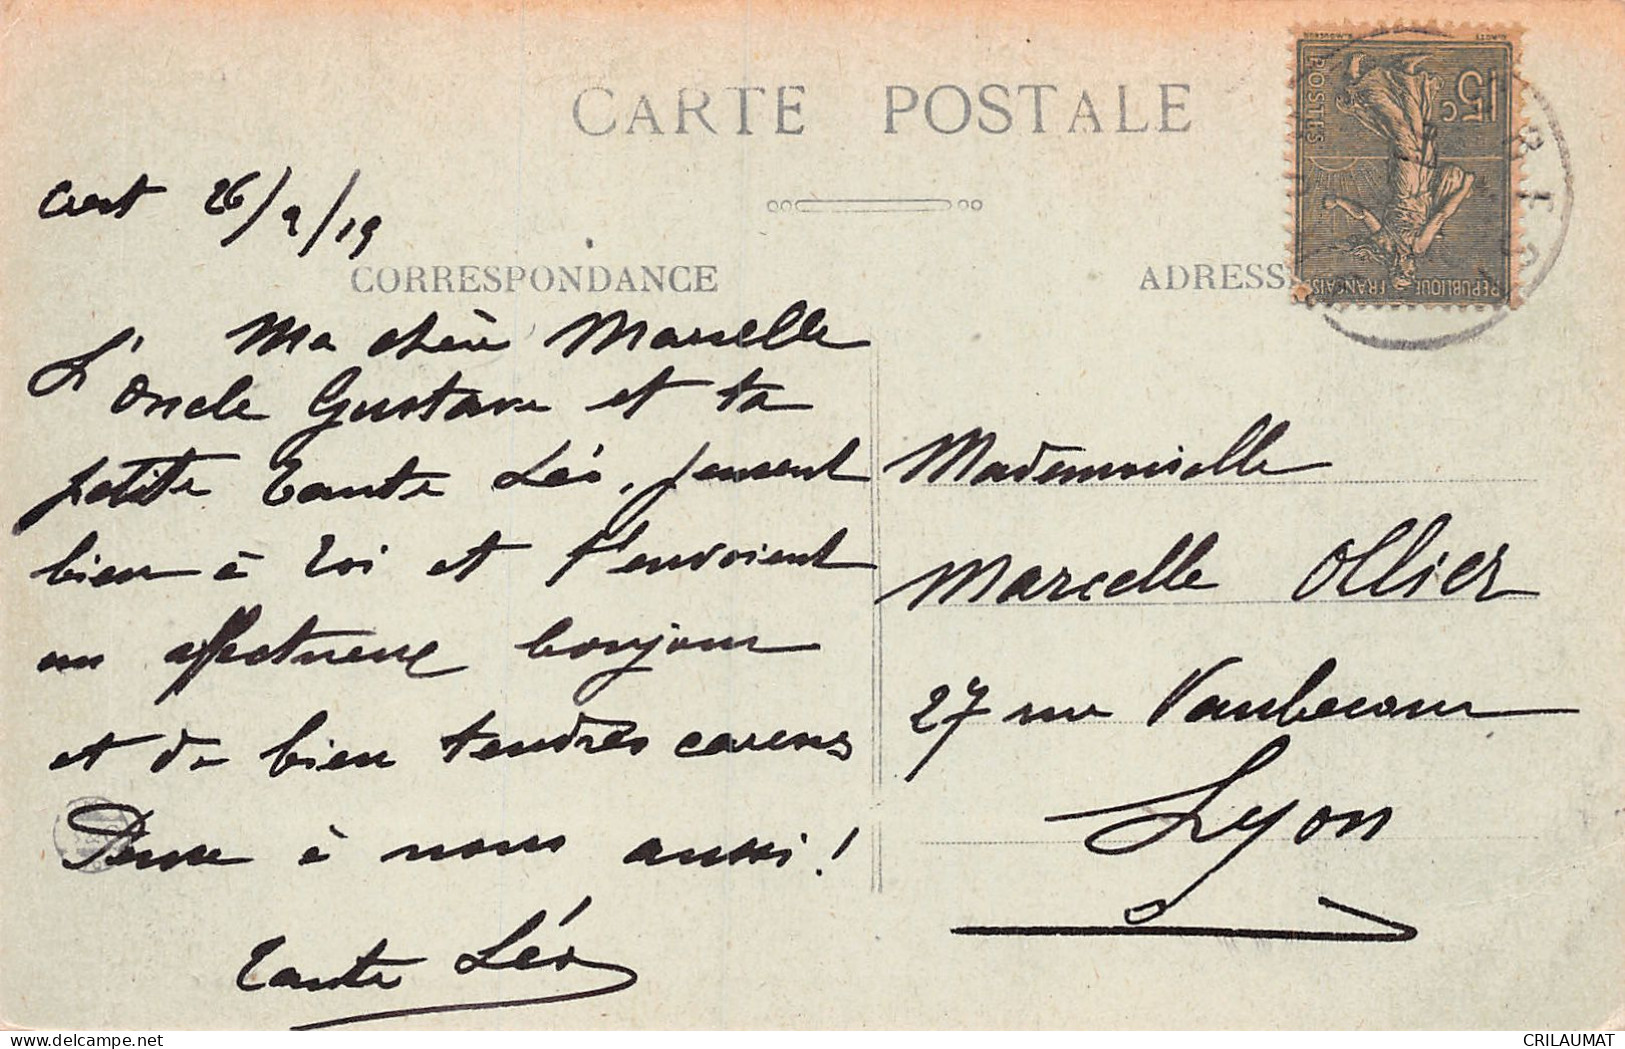 CARTE POSTALE
Crest 26/9/19
CORRESPONDANCE
Ma chère Marcelle
L'Oncle Gustave et ta
petite Tante Léo, pensent
bien à toi et t'envoient
un affectueux bonjour
et de bien tendres caresses
Pense à nous aussi !
Tante Léo
ADRESSE
Mademoiselle
Marcelle Ollier
27 rue Vaubecour
Lyon
15c
POSTES
REPUBLIQUE FRANÇAISE
CRILAUMAT